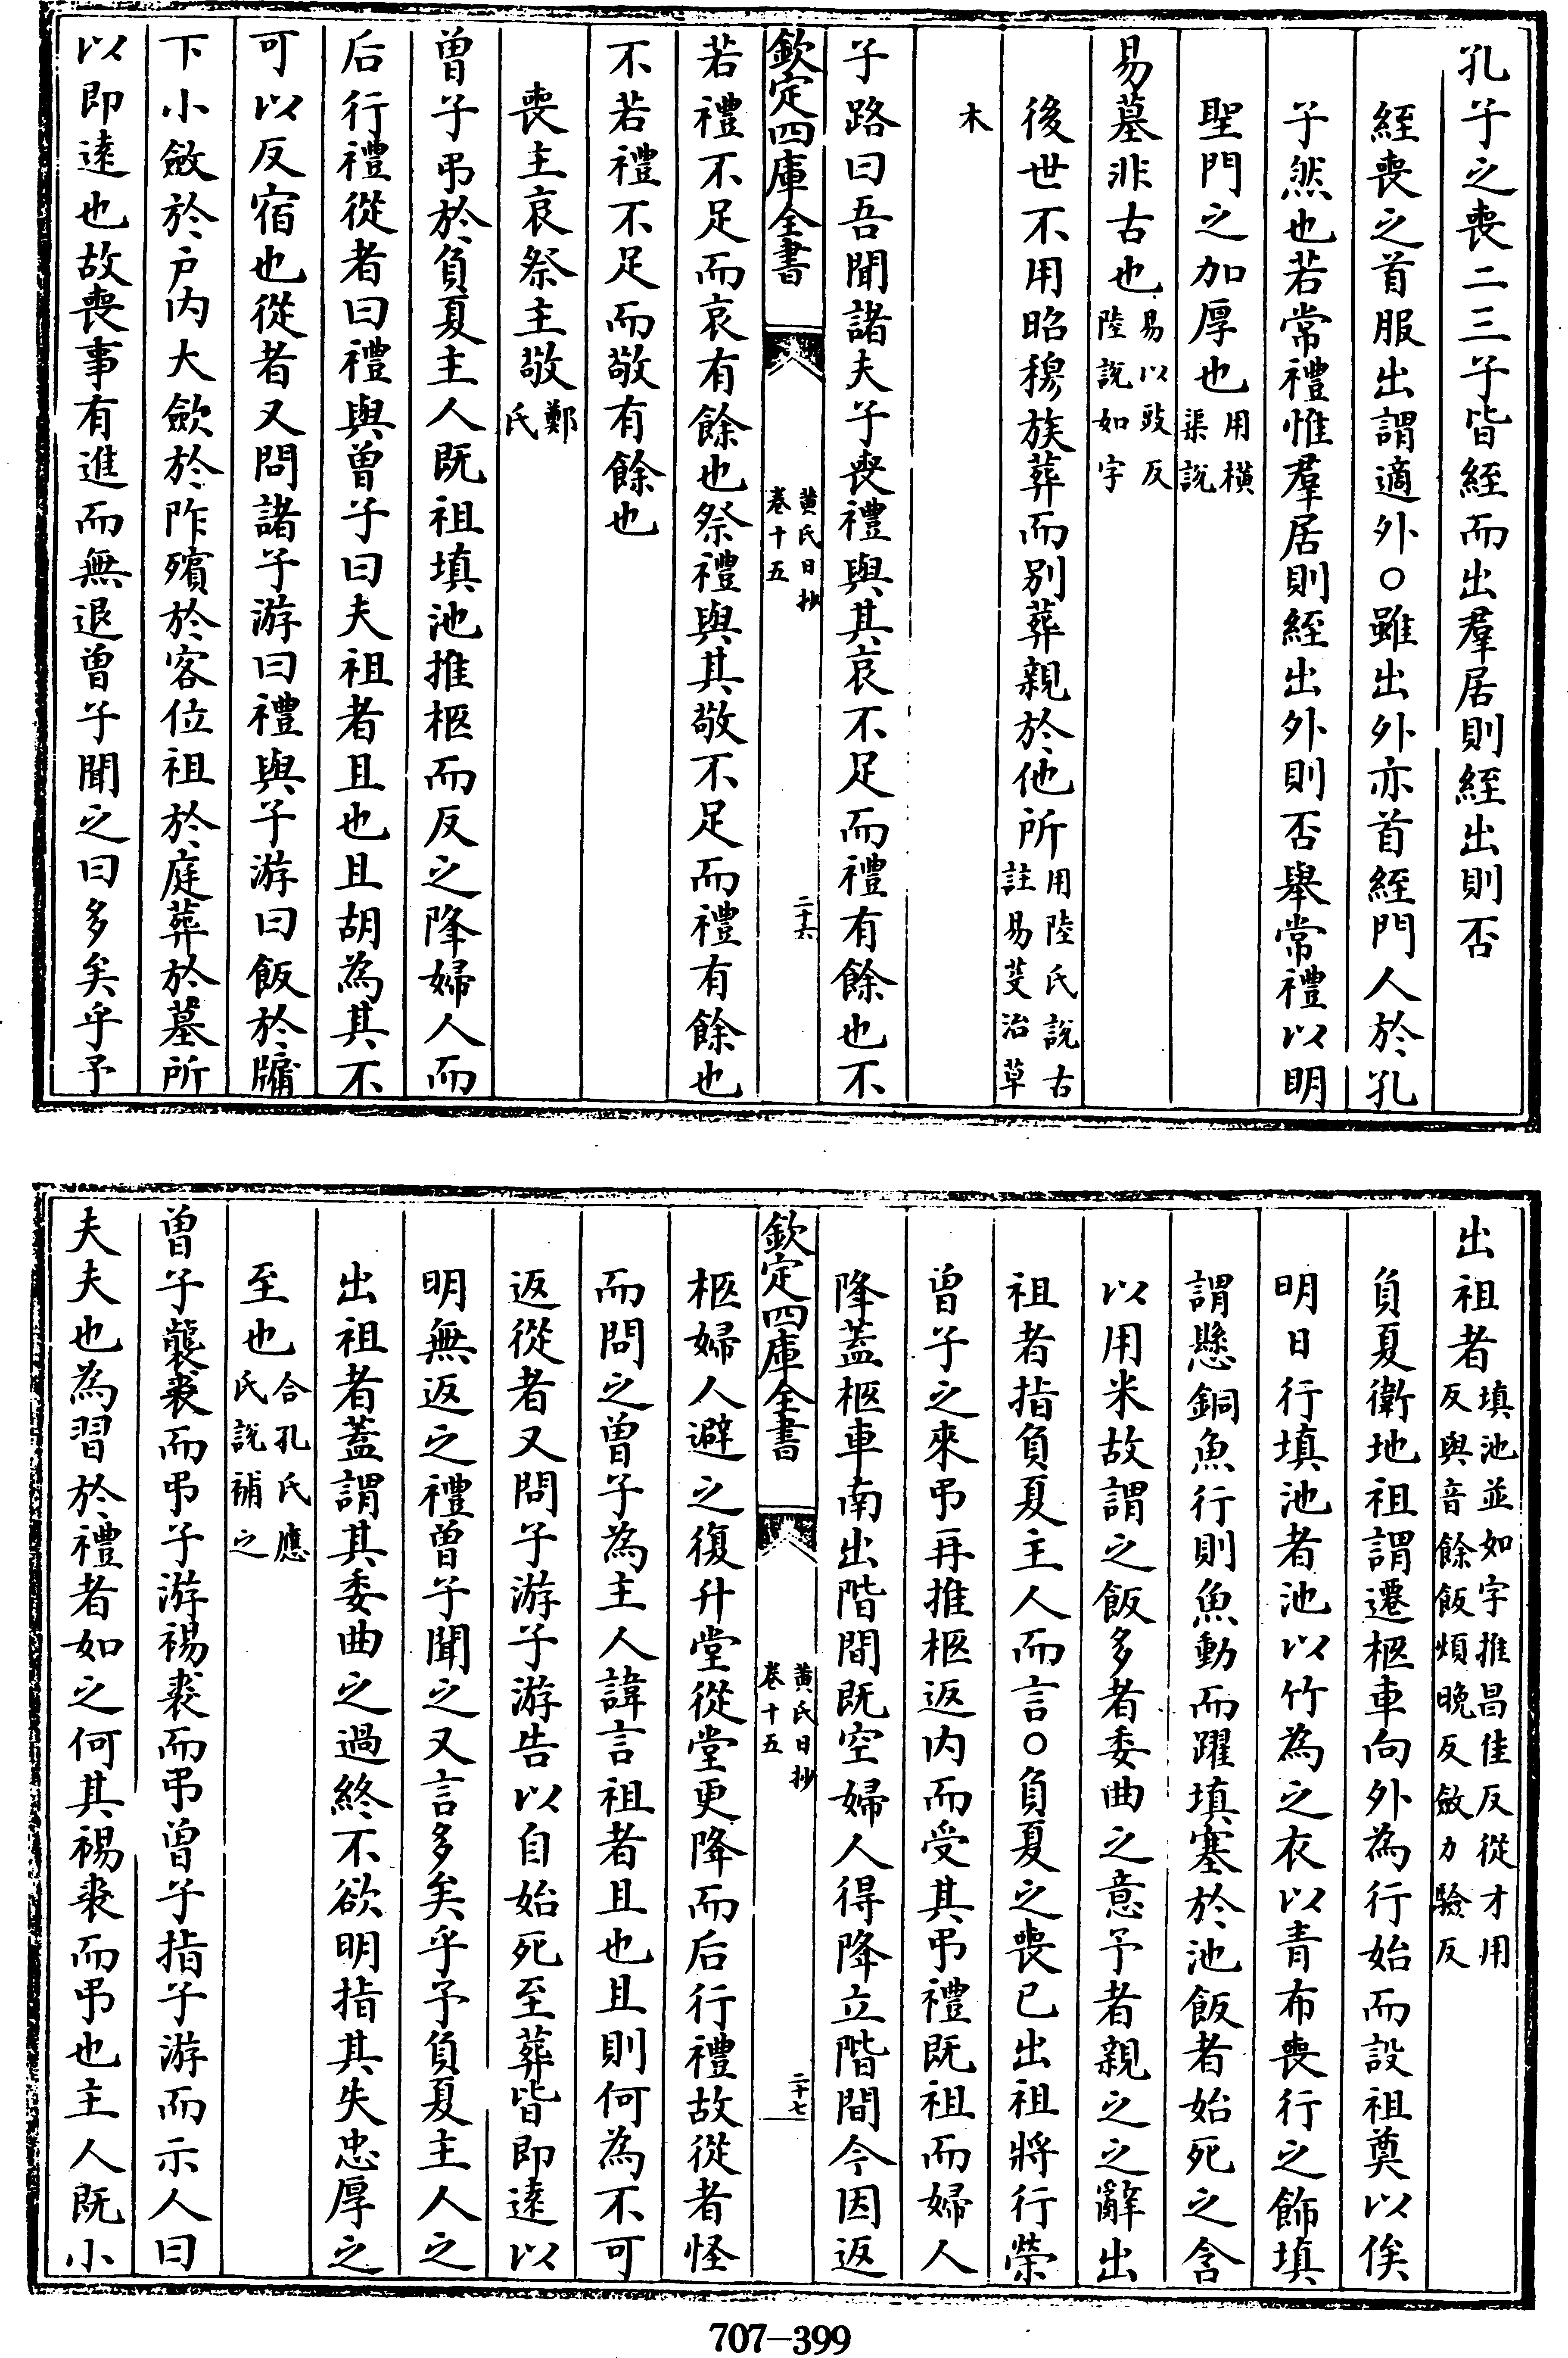 孔子之喪二三子皆絰而出羣居則絰出則否
絰喪之首服出謂適外○雖出外亦首絰門人於孔
子然也若常禮惟羣居則絰出外則否舉常禮以明
聖門之加厚也用橫渠説
易墓非古也易以豉反陸説如字
後世不用昭穆族葬而別葬親於他所用陸氏説古註易芟治草
木
子路曰吾聞諸夫子喪禮與其哀不足而禮有餘也不
欽定四庫全書 黄氏日抄卷十五 二十六
若禮不足而哀有餘也祭禮與其敬不足而禮有餘也
不若禮不足而敬有餘也
喪主哀祭主敬鄭氏
曾子弔於負夏主人既祖填池推柩而反之降婦人而
后行禮從者曰禮與曾子曰夫祖者且也且胡為其不
可以反宿也從者又問諸子游曰禮與子游曰飯於牖
下小斂於戸内大歛於阼殯於客位祖於庭葬於墓所
以即逺也故喪事有進而無退曾子聞之曰多矣乎予
出祖者填池並如字推昌佳反從才用反與音餘飯煩晚反斂力驗反
負夏衛地祖謂遷柩車向外為行始而設祖奠以俟
明日行填池者池以竹為之衣以青布喪行之飾填
謂懸銅魚行則魚動而躍填塞於池飯者始死之含
以用米故謂之飯多者委曲之意予者親之之辭出
祖者指負夏主人而言○負夏之喪已出祖將行榮
曾子之來弔再推柩返内而受其弔禮既祖而婦人
降蓋柩車南出階間既空婦人得降立階間今因返
欽定四庫全書 黄氏日抄卷十五 二十七
柩婦人避之復升堂從堂更降而后行禮故從者怪
而問之曾子為主人諱言祖者且也且則何為不可
返從者又問子游子游告以自始死至葬皆即逺以
明無返之禮曾子聞之又言多矣乎予負夏主人之
出祖者蓋謂其委曲之過終不欲明指其失忠厚之
至也合孔氏應氏説補之
曾子襲裘而弔子游裼裘而弔曾子指子游而示人曰
夫夫也為習於禮者如之何其裼裘而弔也主人既小
707-399